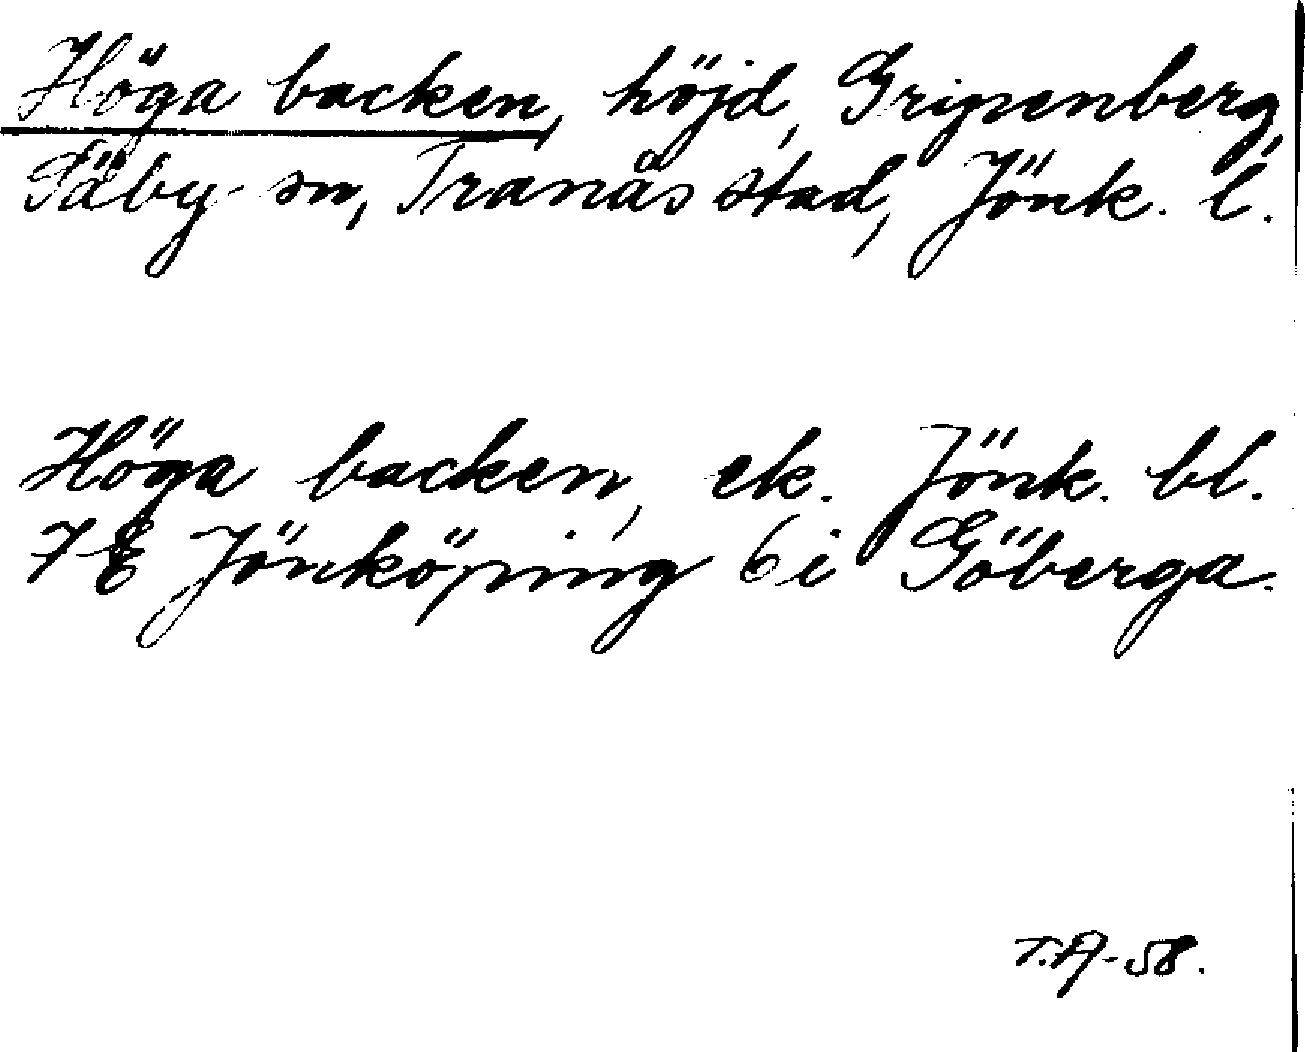 Höga backen, höjd, Gripenberg,
Säby sn, Tranås stad, Jönk. l.
Höga backen, ek. Jönk. bl.
7 E Jönköping 6 i Göberga.
T.A-58.